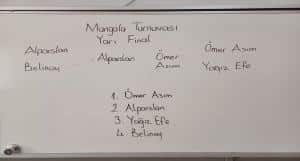 Mangala Turnuvası
Yarı Final
Alparslan
Belinay
Alparslan Ömer Asım
Ömer Asım
Yağız Efe
1. Ömer Asım
2. Alparslan
3. Yağız Efe
4. Belinay